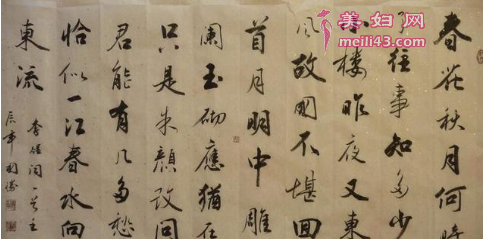 美妇网
meili43.com
春花秋月何時
了往事知多少
小樓昨夜又東
風故國不堪回
首月明中雕
闌玉砌應猶在
只是朱顏改問
君能有几多愁
恰似一江春水向
東流
李煜词一首壬
辰年